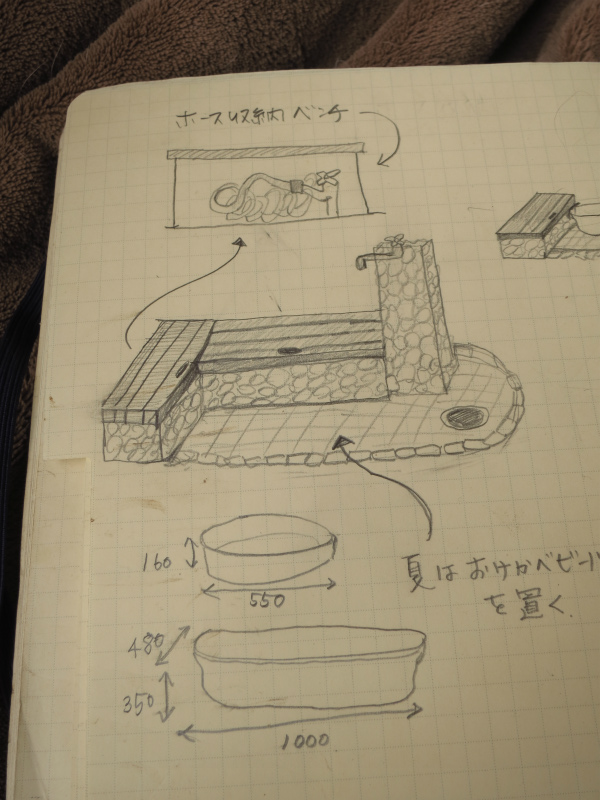 ホース収納ベンチ
160
550
夏はおけかベビー
を置く
480
350
1000